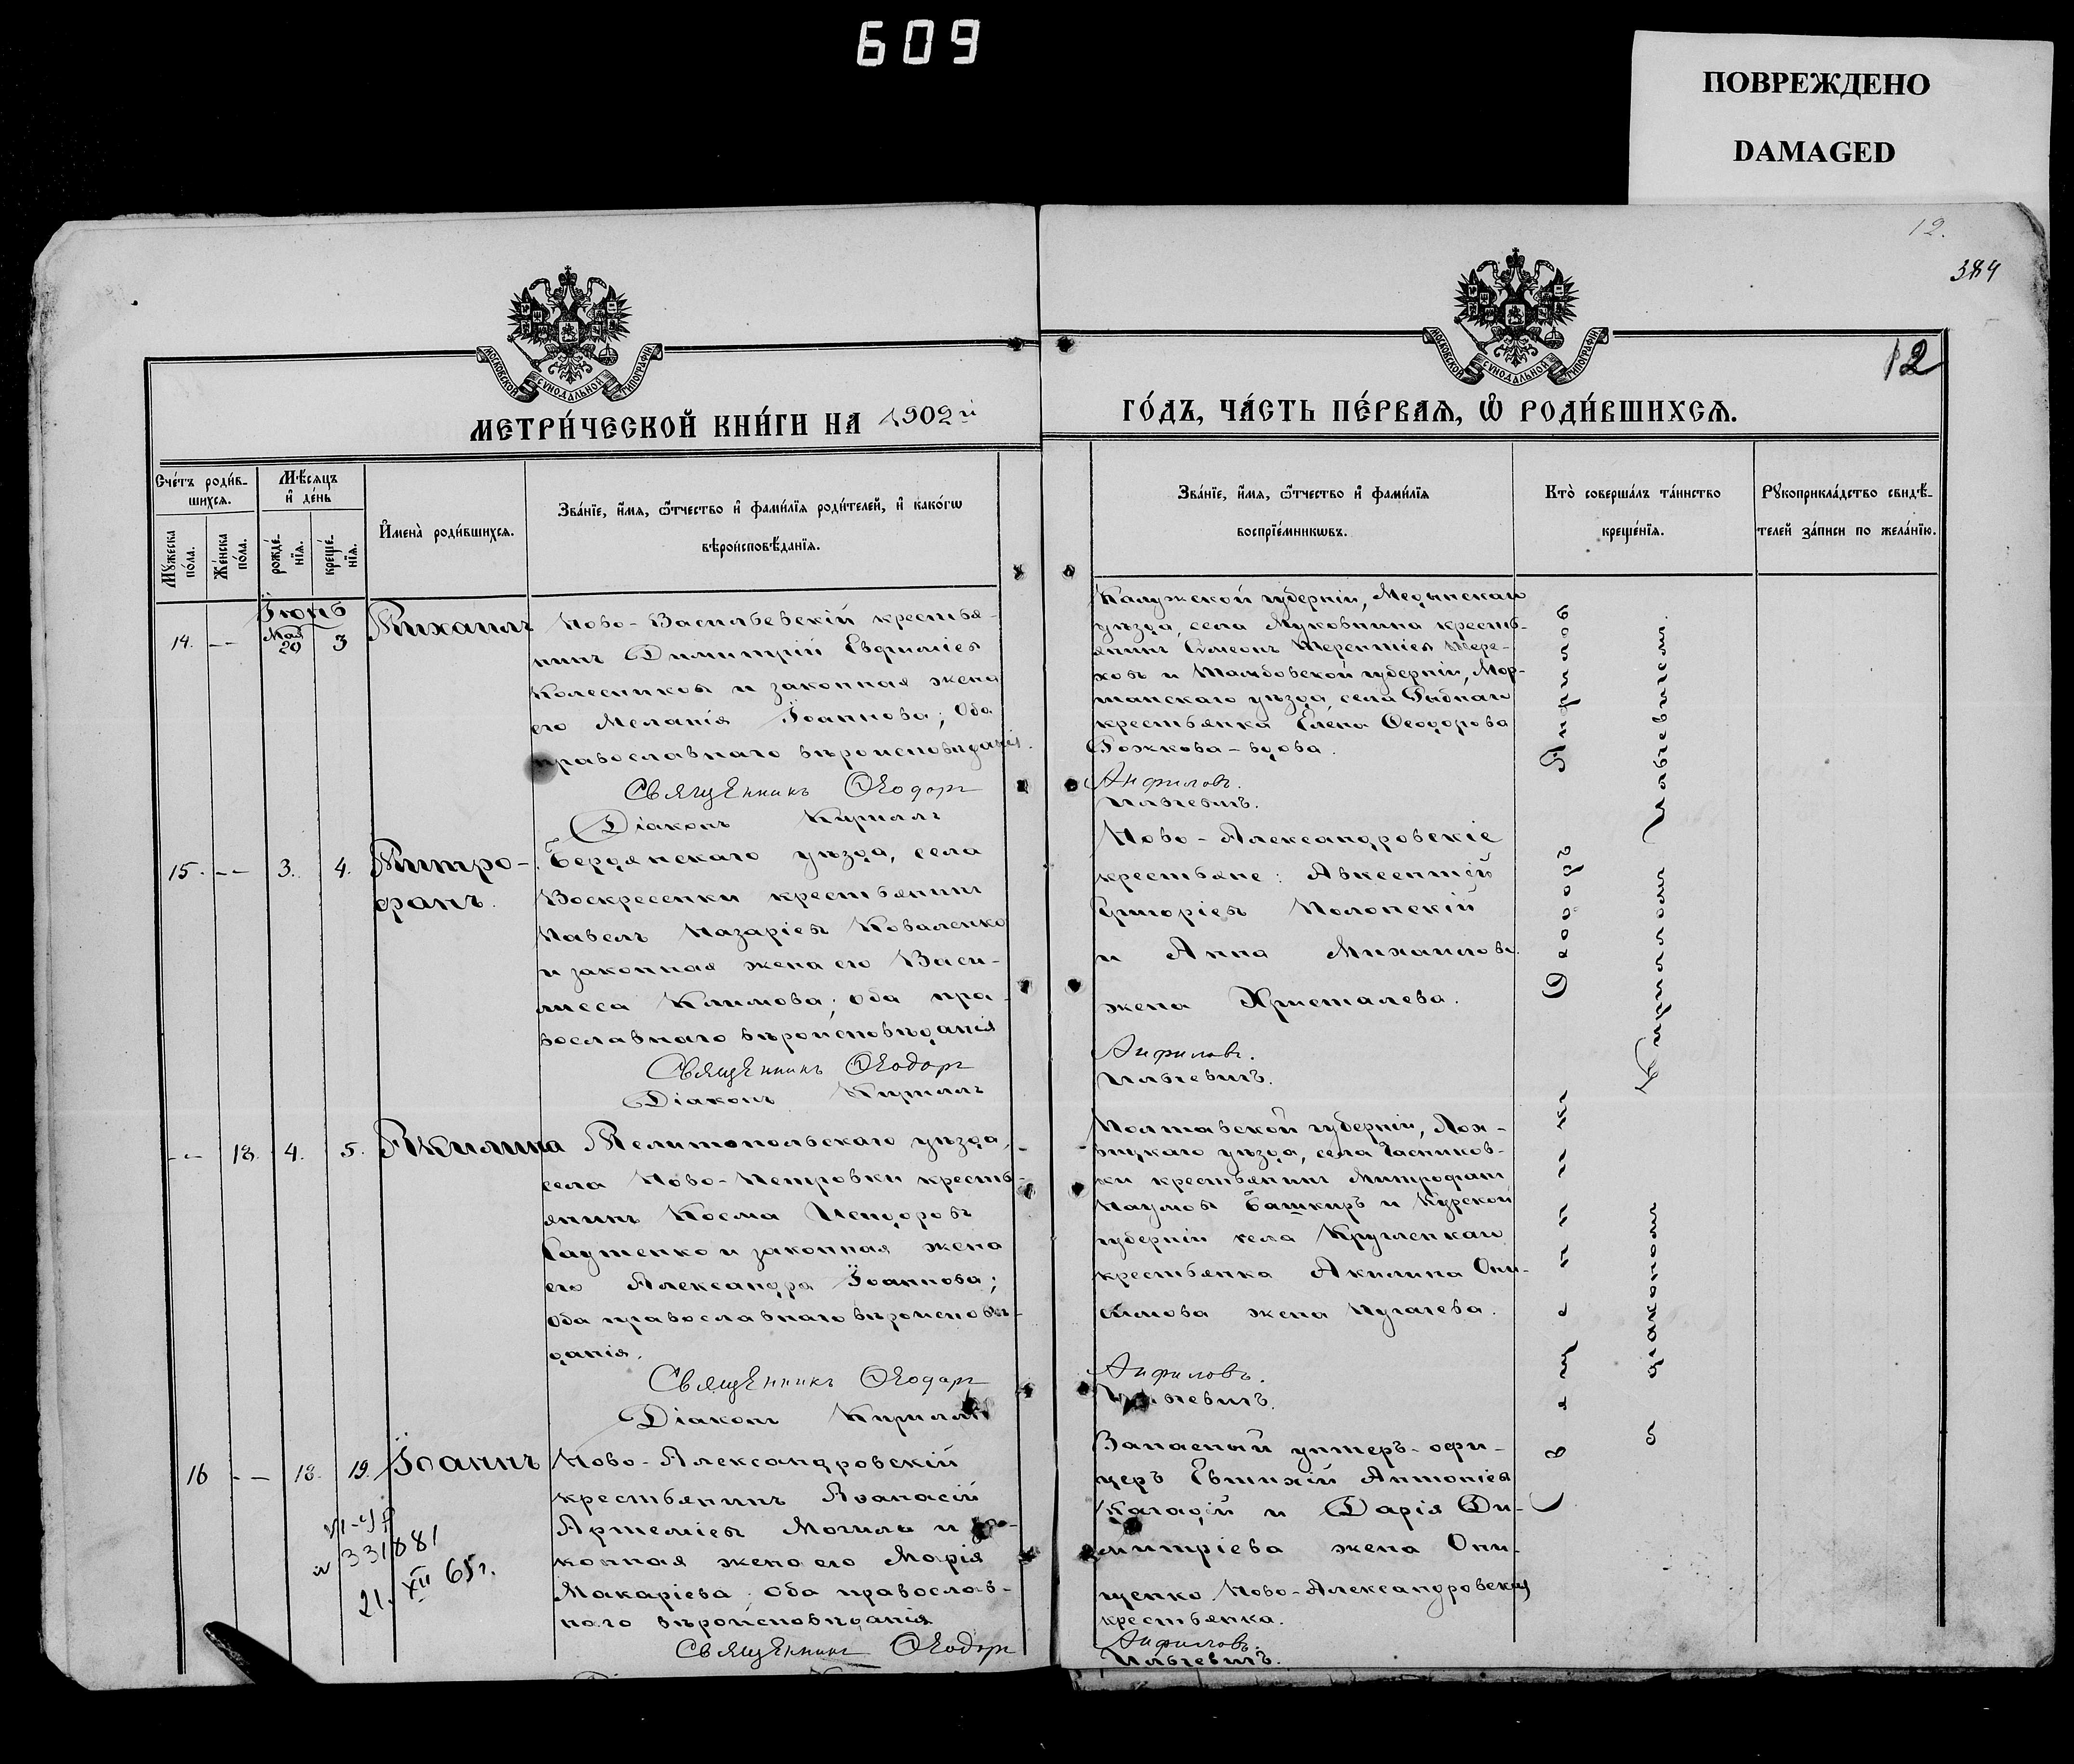 609
ПОВРЕЖДЕНО
DAMAGED
12.
384
12
МОСКОВСКОЙ СѴНОДАЛЬНОЙ ТИПОГРАФІИ
МОСКОВСКОЙ СѴНОДАЛЬНОЙ ТИПОГРАФІИ
МЕТРИ́ЧЕСКОЙ КНИ́ГИ НА 1902й
ГО́ДЪ, ЧА́СТЬ ПЕ́РВАѦ, Ѡ҆ РОДИ́ВШИХСѦ.
Сче́тъ роди́в-
шихсѧ.
Мꙋ́жеска по́ла.
Же́нска по́ла.
Мѣ́сѧцъ
и҆ де́нь
рожде́-
нїѧ.
креще́-
нїѧ.
И҆мена̀ роди́вшихсѧ.
Зва́нїе, и҆́мѧ, ѻ҆́тчество и҆ фами́лїѧ роди́телей, и҆ како́гѡ
вѣроисповѣ́данїѧ.
Зва́нїе, и҆́мѧ, ѻ҆́тчество и҆ фами́лїѧ
воспрїе́мникѡвъ.
Кто̀ соверша́лъ та́инство
креще́нїѧ.
Рꙋкоприкла́дство свидѣ́-
телей за́писи по жела́нїю.
Іюнь
14. -- Мая 29 3 Михаилъ
Ново-Васильевскій крестья-
нинъ Димитрій Евфиміев
Колесников и законная жена
его Меланія Іоаннова; Оба
православнаго вѣроисповѣданія.
Священникъ Ѳеодоръ
Діаконъ Кириллъ
Калужской губерніи, Медынскаго
уѣзда, села Муковнина кресть-
янинъ Симеонъ Терентіев Тере-
ховъ и Тамбовской губерніи, Мор-
шанскаго уѣзда, села Рыбнаго
крестьянка Елена Ѳеодорова
Рожкова-вдова.
Анфиловъ.
Ильчевичъ.
15. -- 3. 4. Митро-
фанъ.
Бердянскаго уѣзда, села
Воскресенки крестьянинъ
Павелъ Назаріев Коваленко
и законная жена его Васи-
лисса Климова; оба пра-
вославнаго вѣроисповѣданія
Священникъ Ѳеодоръ
Діаконъ Кириллъ
Ново-Александровскіе
крестьяне: Авксентій
Григоріев Полонскій
и Анна Михаилова
жена Христалева.
Анфиловъ.
Ильчевичъ.
-- 13. 4. 5. Акилина
Мелитопольскаго уѣзда,
села Ново-Петровки кресть-
янинъ Косма Исидоровъ
Саутенко и законная жена
его Александра Іоаннова;
оба православнаго вѣроисповѣ-
данія.
Священникъ Ѳеодоръ
Діаконъ Кириллъ
Полтавской губерніи, Лох-
вицкаго уѣзда, села Часников-
ки крестьянинъ Митрофанъ
Наумов Башкиръ и Курской
губерніи села Кругленкаго
крестьянка Акилина Они-
симова жена Пугачева.
Анфиловъ.
Ильчевичъ.
16 -- 18. 19. Іоаннъ
Ново-Александровскій
крестьянинъ Аѳанасій
Артеміев Могила и за-
конная жена его Марія
Макаріева; оба православ-
наго вѣроисповѣданія
Священникъ Ѳеодоръ
Запасный унтеръ-офи-
церъ Евтихій Антоніев
и Дарія Ди-
митріева жена Они-
щенко Ново-Александровская
крестьянка.
Анфиловъ.
Ильчевичъ.
331881
21. XII 65г.
Священникъ Ѳеодоръ Анфиловъ
съ діакономъ Кирилломъ Ильчевичемъ.